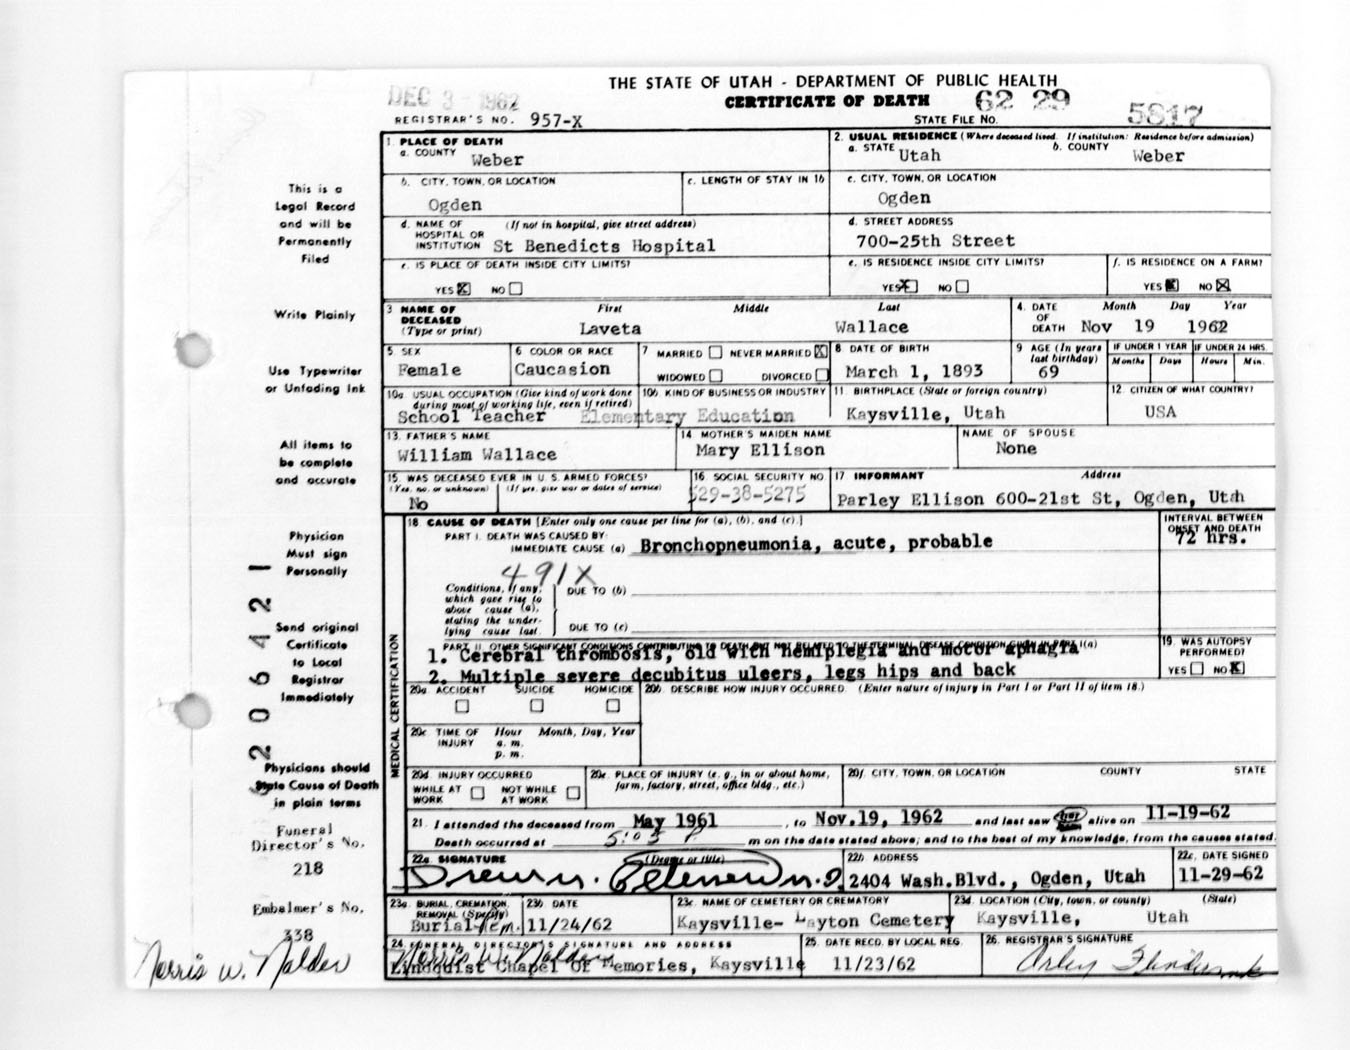 THE STATE OF UTAH - DEPARTMENT OF PUBLIC HEALTH
DEC 3 - 1962 CERTIFICATE OF DEATH 62 29 5817
REGISTRAR'S NO. 957-X STATE FILE NO.
1. PLACE OF DEATH
a. COUNTY Weber
2. USUAL RESIDENCE (Where deceased lived. If institution: Residence before admission)
a. STATE Utah b. COUNTY Weber
b. CITY, TOWN, OR LOCATION Ogden
c. LENGTH OF STAY IN 1b
c. CITY, TOWN, OR LOCATION
Ogden
d. NAME OF HOSPITAL OR INSTITUTION (If not in hospital, give street address)
St Benedicts Hospital
d. STREET ADDRESS
700-25th Street
e. IS PLACE OF DEATH INSIDE CITY LIMITS?
YES X NO
e. IS RESIDENCE INSIDE CITY LIMITS?
YES X NO
f. IS RESIDENCE ON A FARM?
YES NO X
3 NAME OF DECEASED (Type or print) First Middle Last
Laveta Wallace
4. DATE OF DEATH Month Day Year
Nov 19 1962
5. SEX Female
6 COLOR OR RACE Caucasion
7 MARRIED NEVER MARRIED X
WIDOWED DIVORCED
8 DATE OF BIRTH March 1, 1893
9 AGE (In years last birthday) 69
IF UNDER 1 YEAR Months Days
IF UNDER 24 HRS. Hours Min.
10a. USUAL OCCUPATION (Give kind of work done during most of working life, even if retired)
School Teacher
10b. KIND OF BUSINESS OR INDUSTRY
Elementary Education
11. BIRTHPLACE (State or foreign country)
Kaysville, Utah
12 CITIZEN OF WHAT COUNTRY?
USA
13. FATHER'S NAME
William Wallace
14 MOTHER'S MAIDEN NAME
Mary Ellison
NAME OF SPOUSE
None
15. WAS DECEASED EVER IN U. S. ARMED FORCES?
(Yes, no, or unknown) (If yes, give war or dates of service)
No
16. SOCIAL SECURITY NO
529-38-5275
17 INFORMANT Address
Parley Ellison 600-21st St, Ogden, Utah
18. CAUSE OF DEATH [Enter only one cause per line for (a), (b), and (c).]
PART I. DEATH WAS CAUSED BY:
IMMEDIATE CAUSE (a) Bronchopneumonia, acute, probable
INTERVAL BETWEEN ONSET AND DEATH
72 hrs.
491X
Conditions, if any, which gave rise to above cause (a), stating the underlying cause last.
DUE TO (b)
DUE TO (c)
PART II. OTHER SIGNIFICANT CONDITIONS CONTRIBUTING TO DEATH BUT NOT RELATED TO THE TERMINAL DISEASE CONDITION GIVEN IN PART I(a)
1. Cerebral thrombosis, old with hemiplegia and motor aphagia
2. Multiple severe decubitus ulcers, legs hips and back
19. WAS AUTOPSY PERFORMED?
YES NO X
20a. ACCIDENT SUICIDE HOMICIDE
20b. DESCRIBE HOW INJURY OCCURRED. (Enter nature of injury in Part I or Part II of item 18.)
20c. TIME OF INJURY Hour Month, Day, Year
a. m.
p. m.
20d. INJURY OCCURRED
WHILE AT WORK NOT WHILE AT WORK
20e. PLACE OF INJURY (e. g., in or about home, farm, factory, street, office bldg., etc.)
20f. CITY, TOWN, OR LOCATION COUNTY STATE
21. I attended the deceased from May 1961, to Nov.19, 1962 and last saw her alive on 11-19-62
Death occurred at 5:03 P m on the date stated above; and to the best of my knowledge, from the causes stated.
22a. SIGNATURE (Degree or title)
Drew M. Petersen M.D.
22b. ADDRESS
2404 Wash.Blvd., Ogden, Utah
22c. DATE SIGNED
11-29-62
23a. BURIAL, CREMATION, REMOVAL (Specify)
Burial-Rem.
23b. DATE
11/24/62
23c. NAME OF CEMETERY OR CREMATORY
Kaysville- Layton Cemetery
23d. LOCATION (City, town, or county) (State)
Kaysville, Utah
24 FUNERAL DIRECTOR'S SIGNATURE AND ADDRESS
Norris W. Nalder
Lindquist Chapel Of Memories, Kaysville
25. DATE RECD. BY LOCAL REG.
11/23/62
26. REGISTRAR'S SIGNATURE
This is a
Legal Record
and will be
Permanently
Filed
Write Plainly
Use Typewriter
or Unfading Ink
All items to
be complete
and accurate
Physician
Must sign
Personally
Send original
Certificate
to Local
Registrar
Immediately
Physicians should
State Cause of Death
in plain terms
Funeral
Director's No.
218
Embalmer's No.
338
Norris W. Nalder
MEDICAL CERTIFICATION